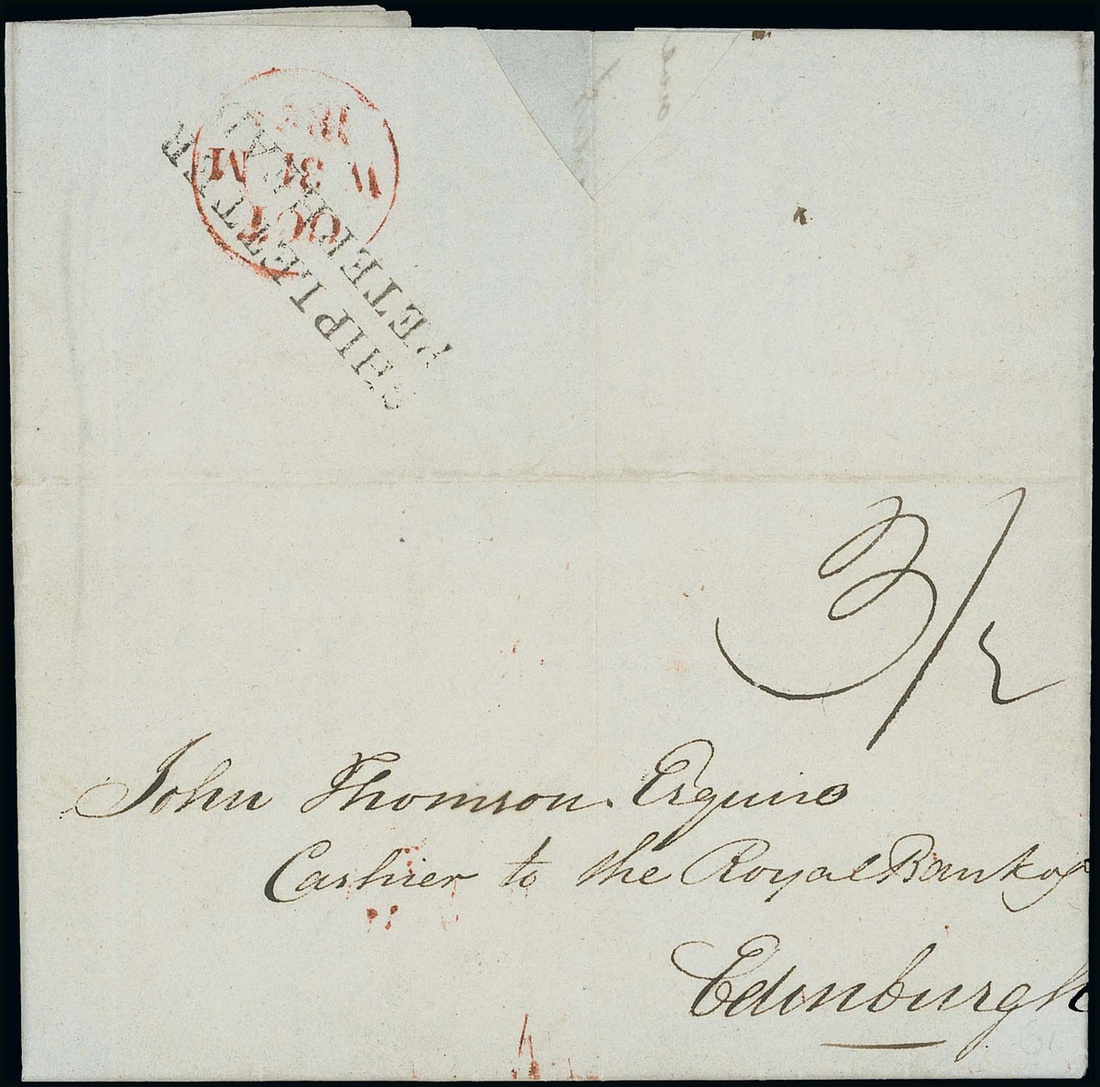 SHIP LETTER
PETERHEAD
OCT
W 31 M
3/2
John Thomson Esquire
Cashier to the Royal Bank of
Edinburgh